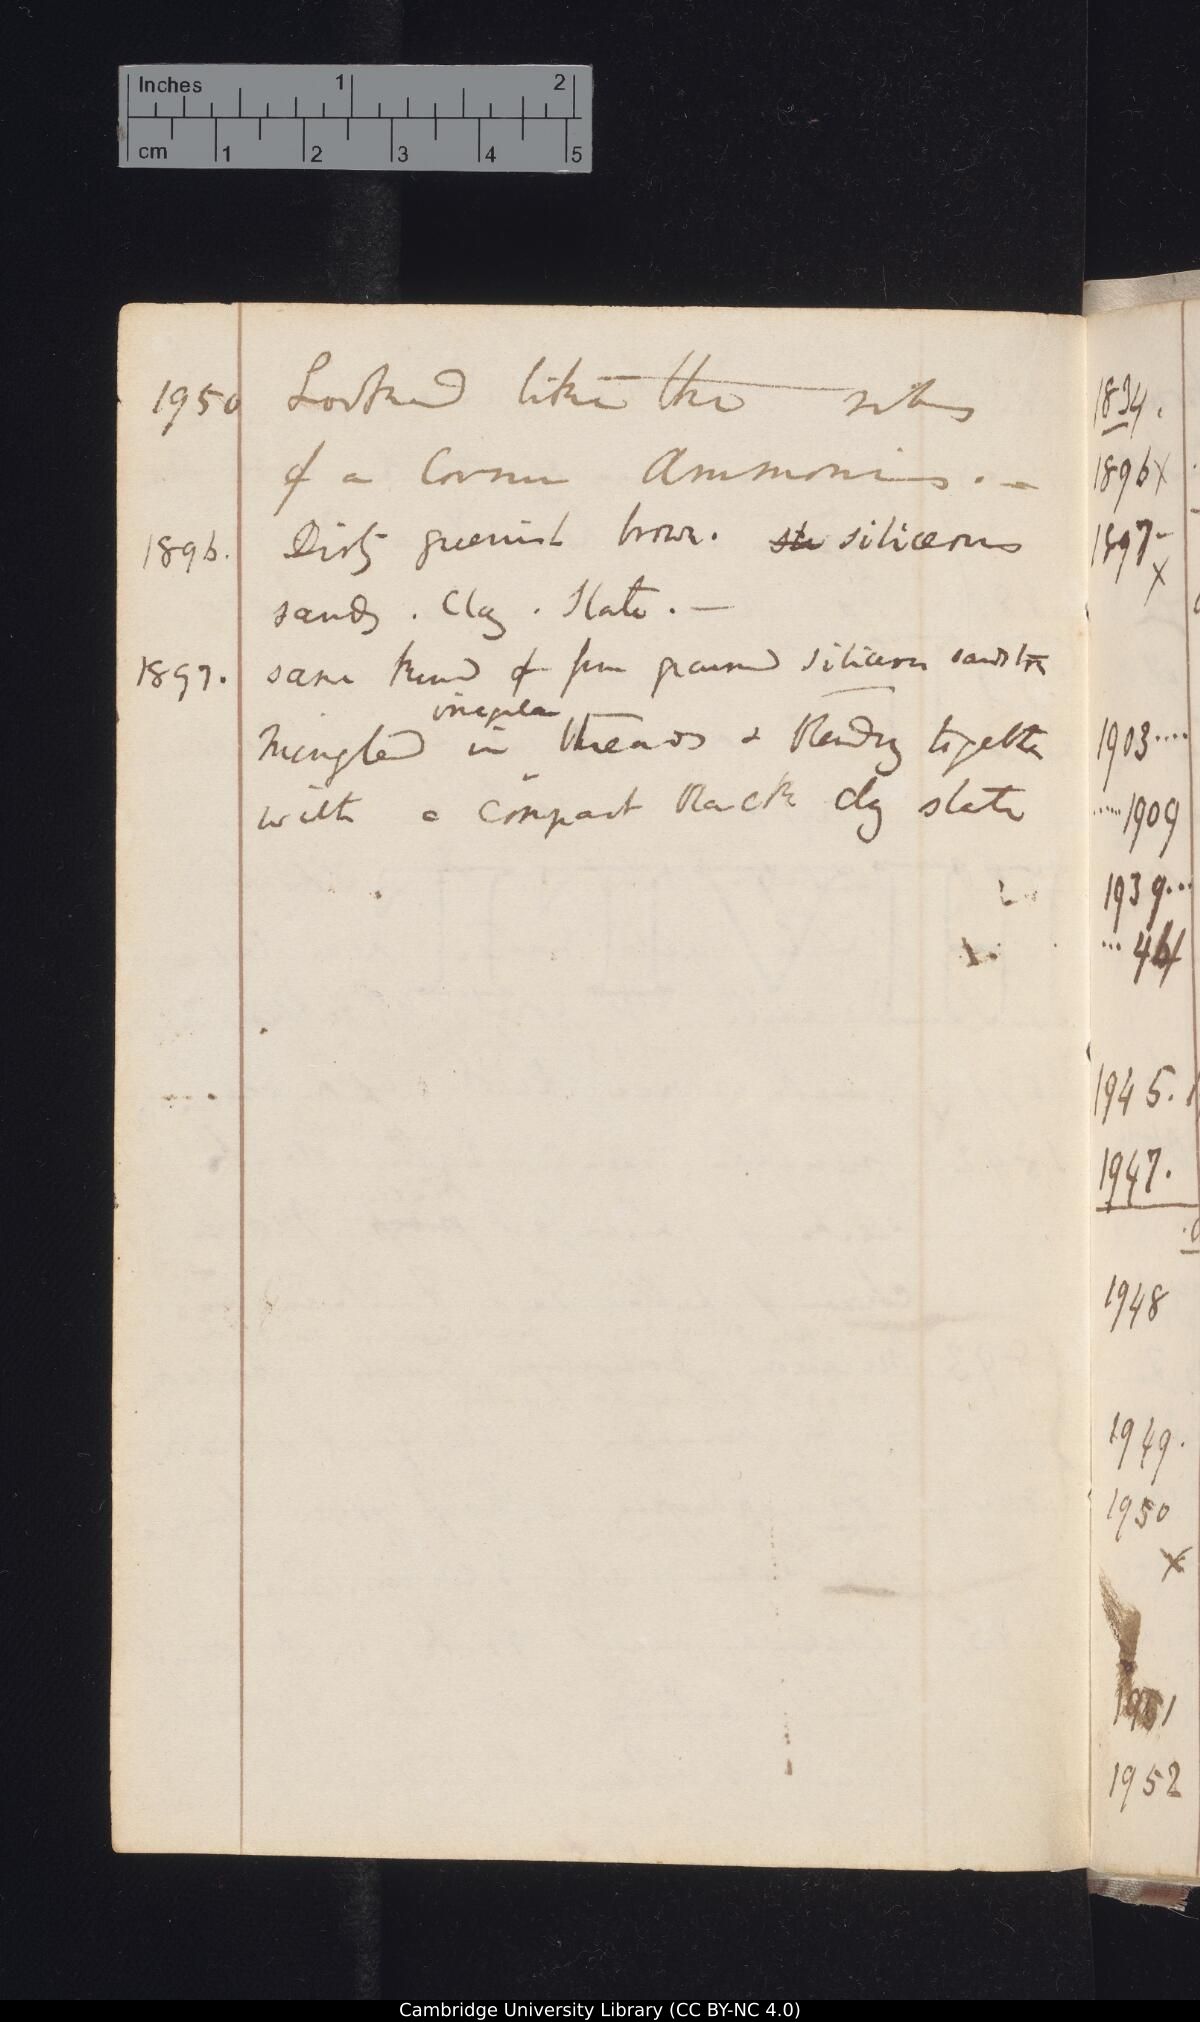 Inches 1 2
cm 1 2 3 4 5
1950 Looked like the ribs
of a Cornu Ammonis. —
1896. Dirty greenish brown. siliceous
sandy. Clay. Slate. —
1897. same kind of fine grained siliceous sandstone
irregular
mingled in threads & blending together
with a compact black clay slate
1834.
1896 x
1897 –
x
1903....
.....1909
1939...
... 46
1945.
1947.
1948
1949.
1950
x
1951
1952
Cambridge University Library (CC BY-NC 4.0)